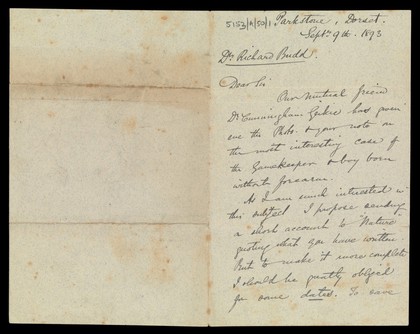 5153/A/50/1 Parkstone, Dorset.
Septr. 9th. 1893
Dr. Richard Budd.
Dear Sir
Our mutual friend
Dr. Cunningham Geikie has given
me the Photo. & your note on
the most interesting case of
the Gamekeeper & boy born
without forearm.
As I am much interested in
this subject I propose sending
a short account to "Nature"
quoting what you have written.
But to make it more complete
I should be greatly obliged
for some dates. To save